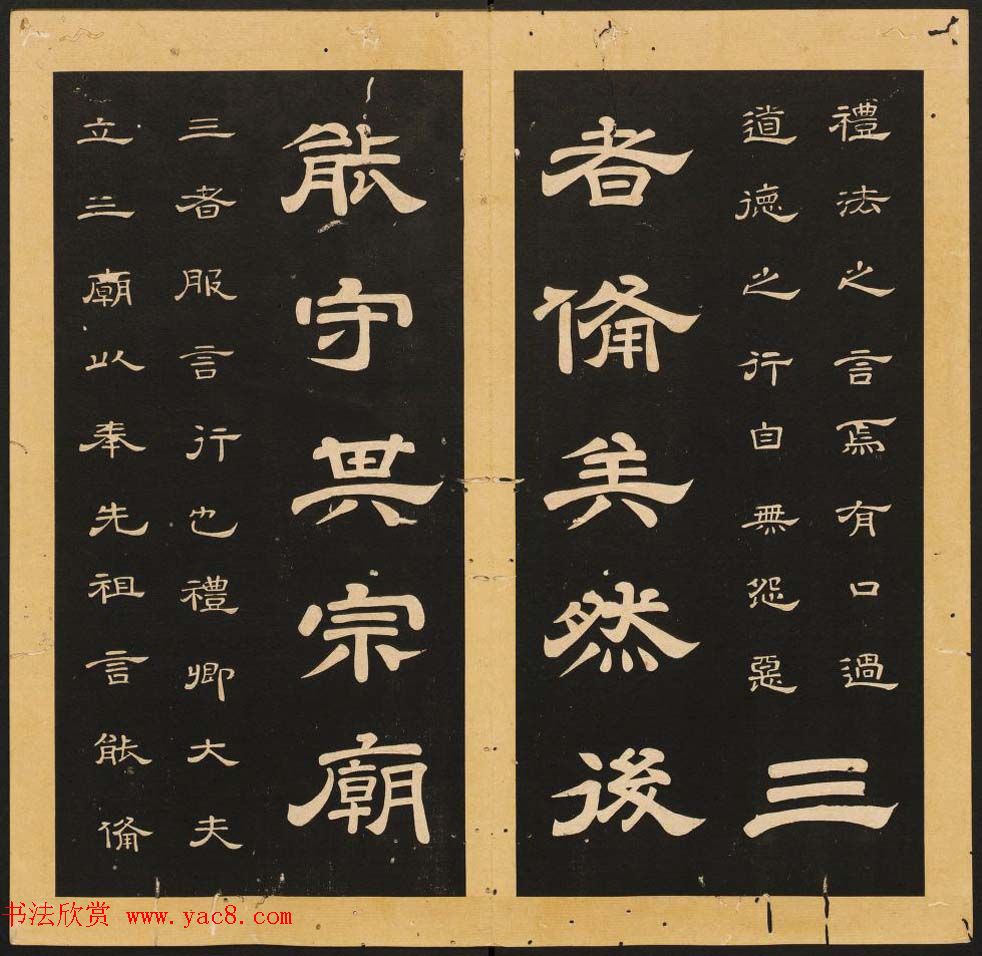 禮法之言焉有口過
道德之行自無怨惡
三
者備矣然後
能守其宗廟
三者服言行也禮卿大夫
立三廟以奉先祖言能備
书法欣赏 www.yac8.com